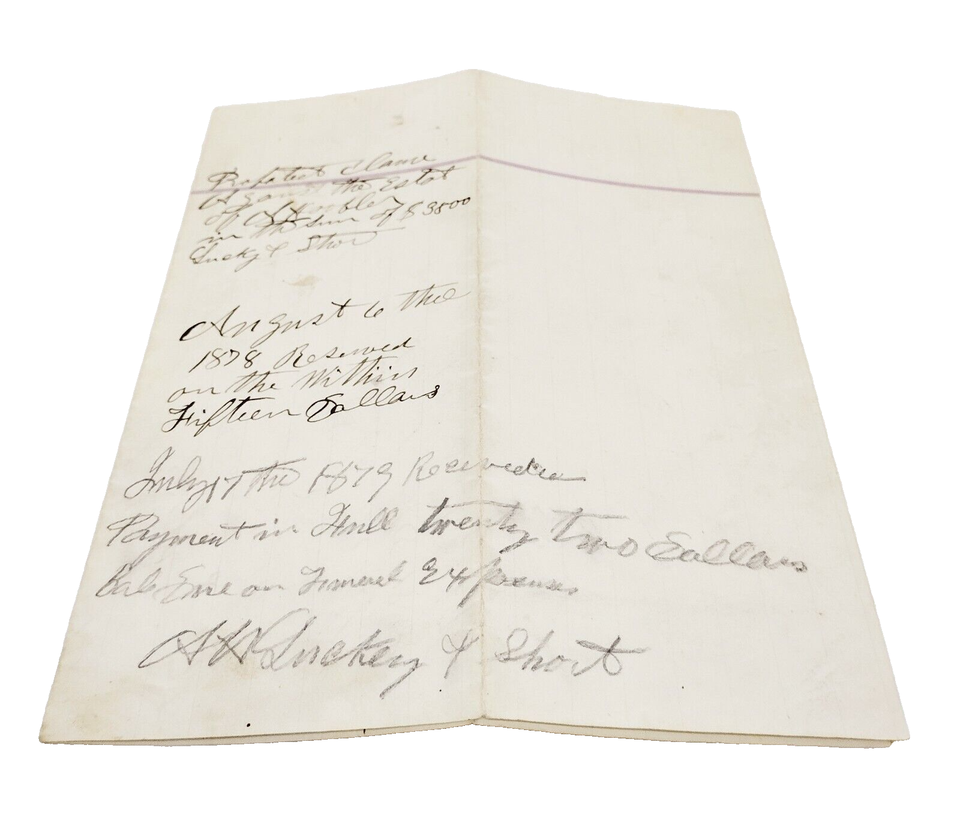 Probated Clame
Against the Estat
of
in the sum of $ 3800
Lucky & Shor
August 6 the
1878 Reseved
on the Within
Fifteen Dollars
July 17 the 1879 Recevedin
Payment in Full twenty two Dollars
on Funerel Expences
Luckey & Short